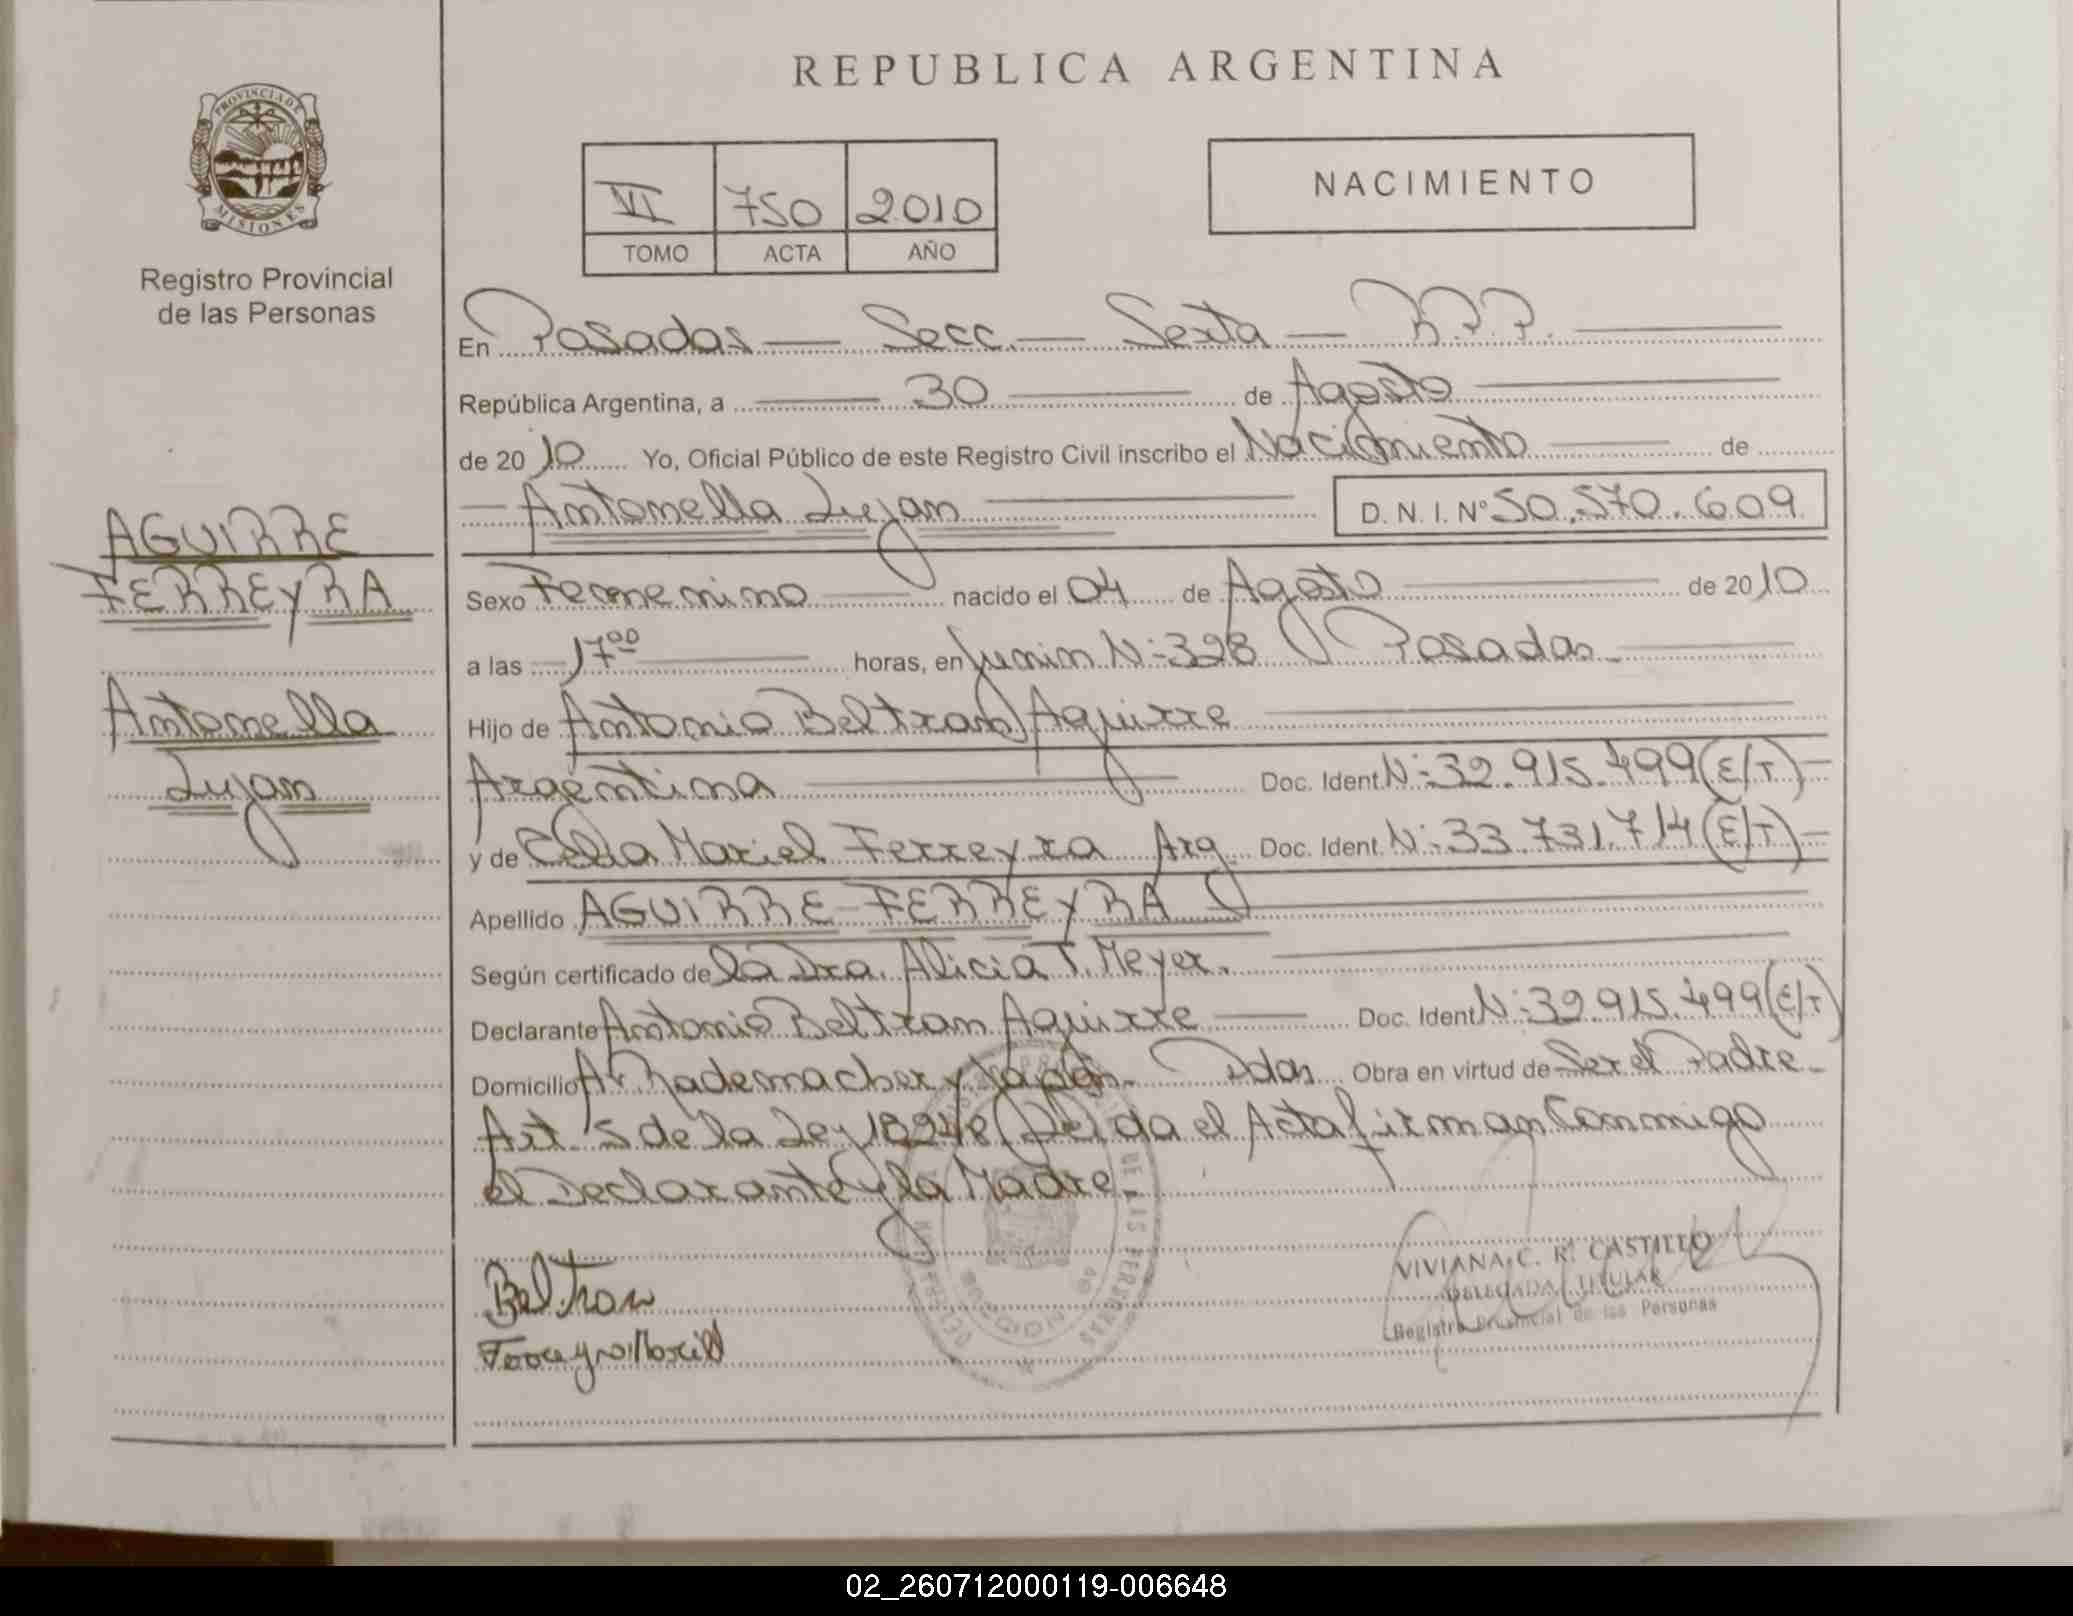 REPUBLICA ARGENTINA
PROVINCIA DE
MISIONES
Registro Provincial
de las Personas
VI 750 2010
TOMO ACTA AÑO
NACIMIENTO
En Posadas — Secc. — Sexta — R.P.P.
República Argentina, a 30 de Agosto
de 2010 Yo, Oficial Público de este Registro Civil inscribo el Nacimiento de
Antonella Lujan D. N. I. Nº 50.570.609
AGUIRRE
FERREYRA
Antonella
Lujan
Sexo Femenino nacido el 04 de Agosto de 2010
a las 17⁰⁰ horas, en Junin Nº 328 Posadas
Hijo de Antonio Beltran Aguirre
Argentina Doc. Ident. Nº 32.915.499 (E/T)
y de Celia Mariel Ferreyra Arg. Doc. Ident. Nº 33.731.714 (E/T)
Apellido AGUIRRE - FERREYRA
Según certificado de la Dra. Alicia T. Meyer.
Declarante Antonio Beltran Aguirre Doc. Ident. Nº 32.915.499 (E/T)
Domicilio Av. Rademacher y Japón. Pdas Obra en virtud de Ser el Padre.
Art. 5 de la Ley 18248 Leida el Acta firman Conmigo
el Declarante y la Madre.
Beltran
VIVIANA C. R. CASTILLO
DELEGADA TITULAR
Registro Provincial de las Personas
02_260712000119-006648